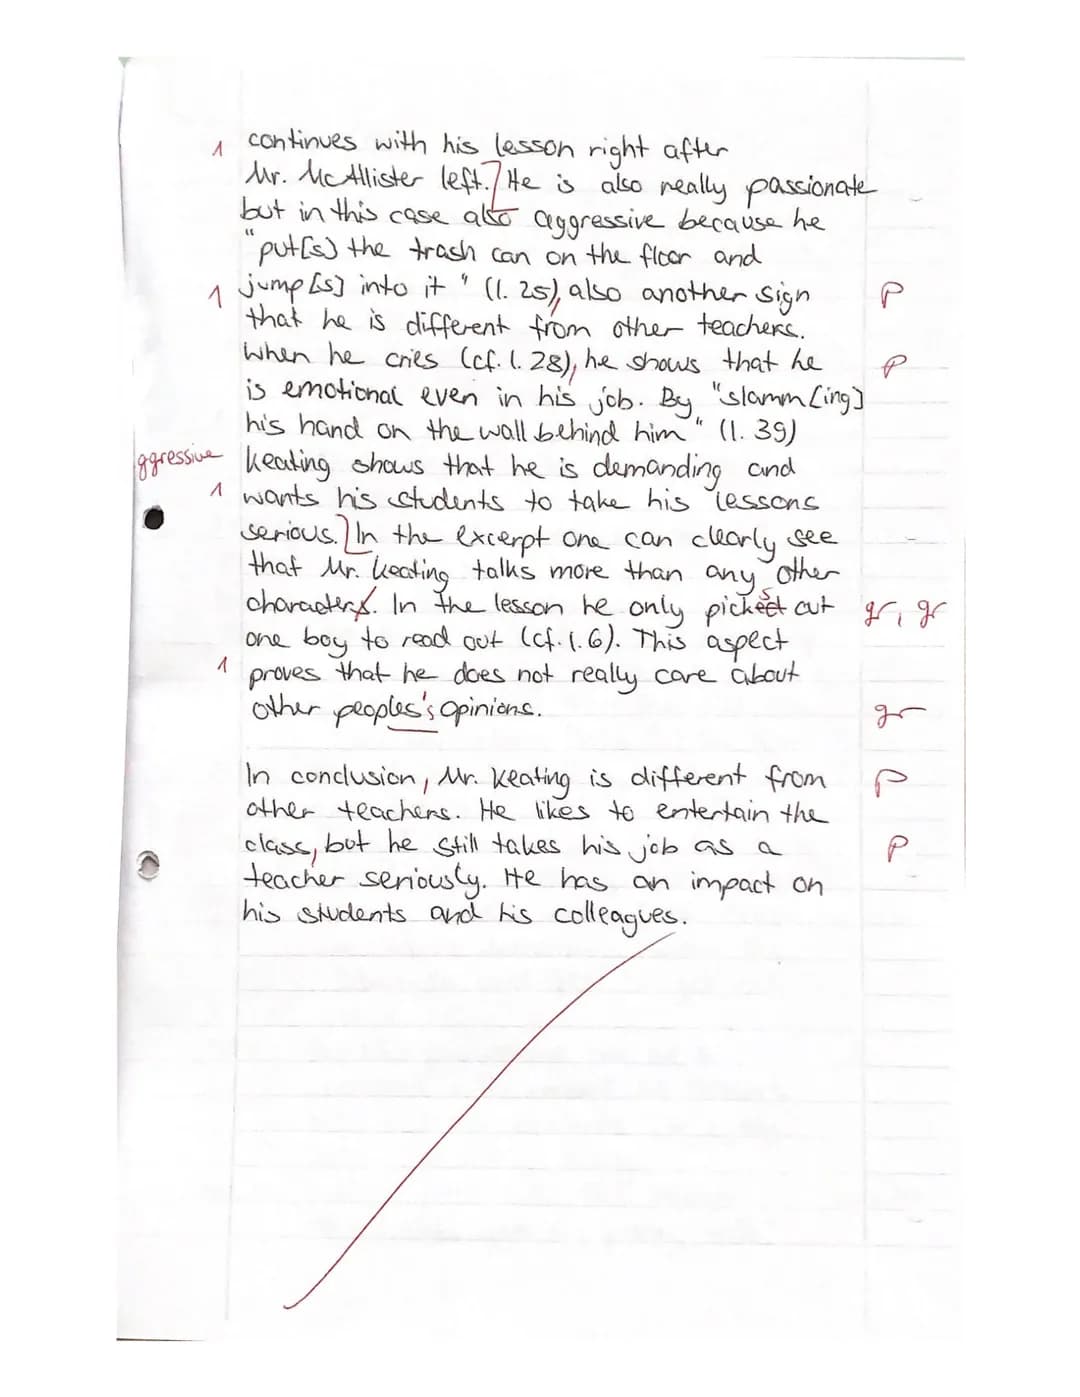 1 continues with his lesson right after
Mr. McAllister left. He is also really passionate
but in this case also aggressive because he
"put[s] the trash can on the floor and
1 jump[s] into it" (l. 25), also another sign P
that he is different from other teachers.
When he cries (cf. l. 28), he shows that he P
is emotional even in his job. By "slamm[ing]
his hand on the wall behind him" (l. 39)
ggressive Keating shows that he is demanding and
1 wants his students to take his lessons
serious. In the excerpt one can clearly see
that Mr. Keating talks more than any other
characters. In the lesson he only picked out gr, gr
one boy to read out (cf. l. 6). This aspect
1 proves that he does not really care about
other peoples's opinions. gr
In conclusion, Mr. Keating is different from P
other teachers. He likes to entertain the
class, but he still takes his job as a P
teacher seriously. He has an impact on
his students and his colleagues.